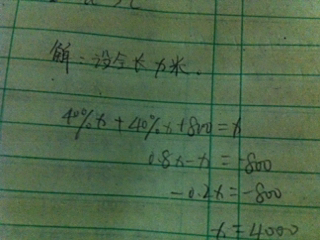 解：设全长x米。
40%x+40%x+800=x
0.8x-x=-800
-0.2x=-800
x=4000